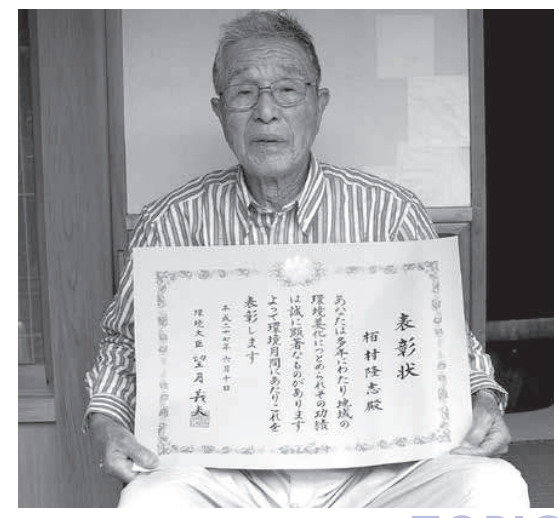 表彰状
柏村隆志殿
あなたは多年にわたり地域の
環境美化につとめられその功績
は誠に顕著なものがあります
よって環境月間にあたりこれを
表彰します
平成二十七年六月十日
環境大臣 望月義夫